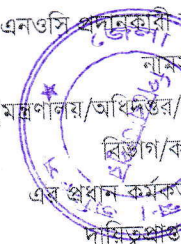 এনওসি প্রদানকারী
নাম
মন্ত্রণালয়/অধিদপ্তর/
বিভাগ/ক
এর প্রধান কর্মক
দায়িত্বপ্রাপ্ত